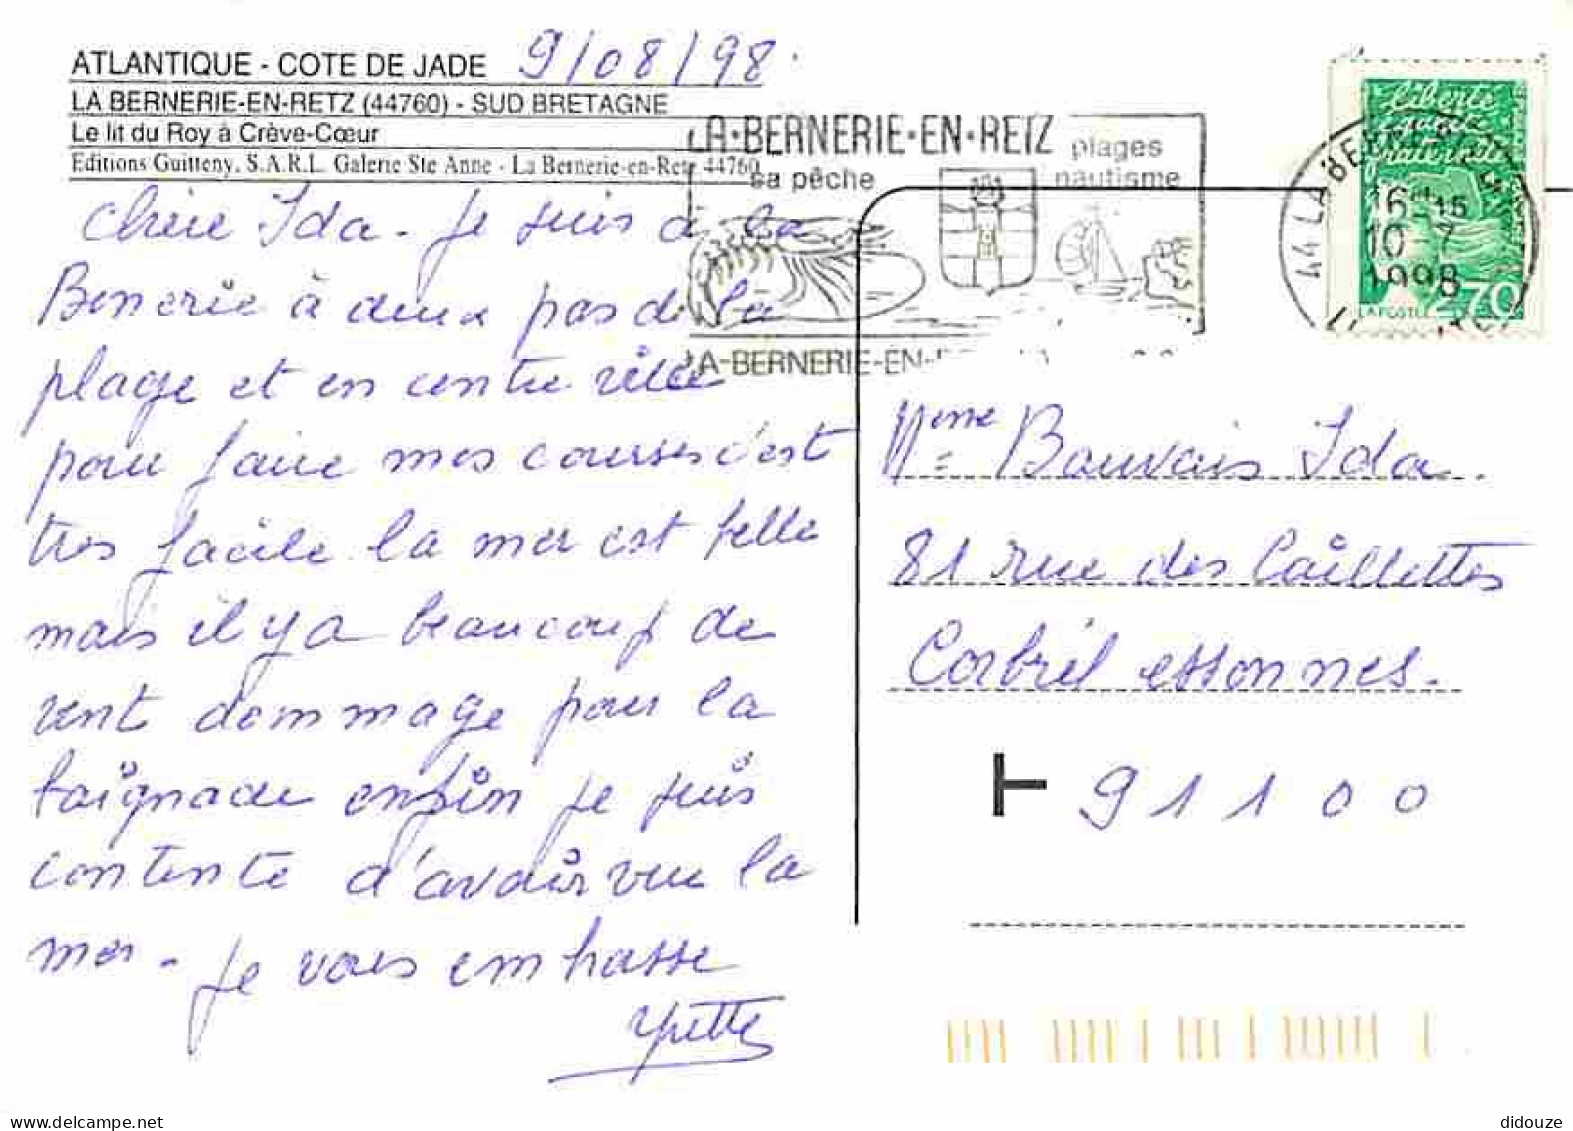 ATLANTIQUE - COTE DE JADE 9/08/98.
LA BERNERIE-EN-RETZ (44760) - SUD BRETAGNE
Le lit du Roy à Crève-Cœur
Editions Guitteny, S.A.R.L. Galerie Ste Anne - La Bernerie-en-Retz 44760
LA·BERNERIE·EN·RETZ
sa pêche
plages
nautisme
LA-BERNERIE-EN-
44 LA BERNERIE EN
16H15
10-7
1998
liberté
LA POSTE 2,70
chère Ida - je suis à la
Bernerie à deux pas de la
plage et en centre ville
pour faire mes courses c'est
tres facile la mer est belle
mais il y a beaucoup de
vent dommage pour la
baignade enfin je suis
contente d'avoir vue la
mer - je vous embrasse
Yvette
Mme Bauvais Ida.
81 rue des Caillettes
Corbeil essonnes.
91100
didouze